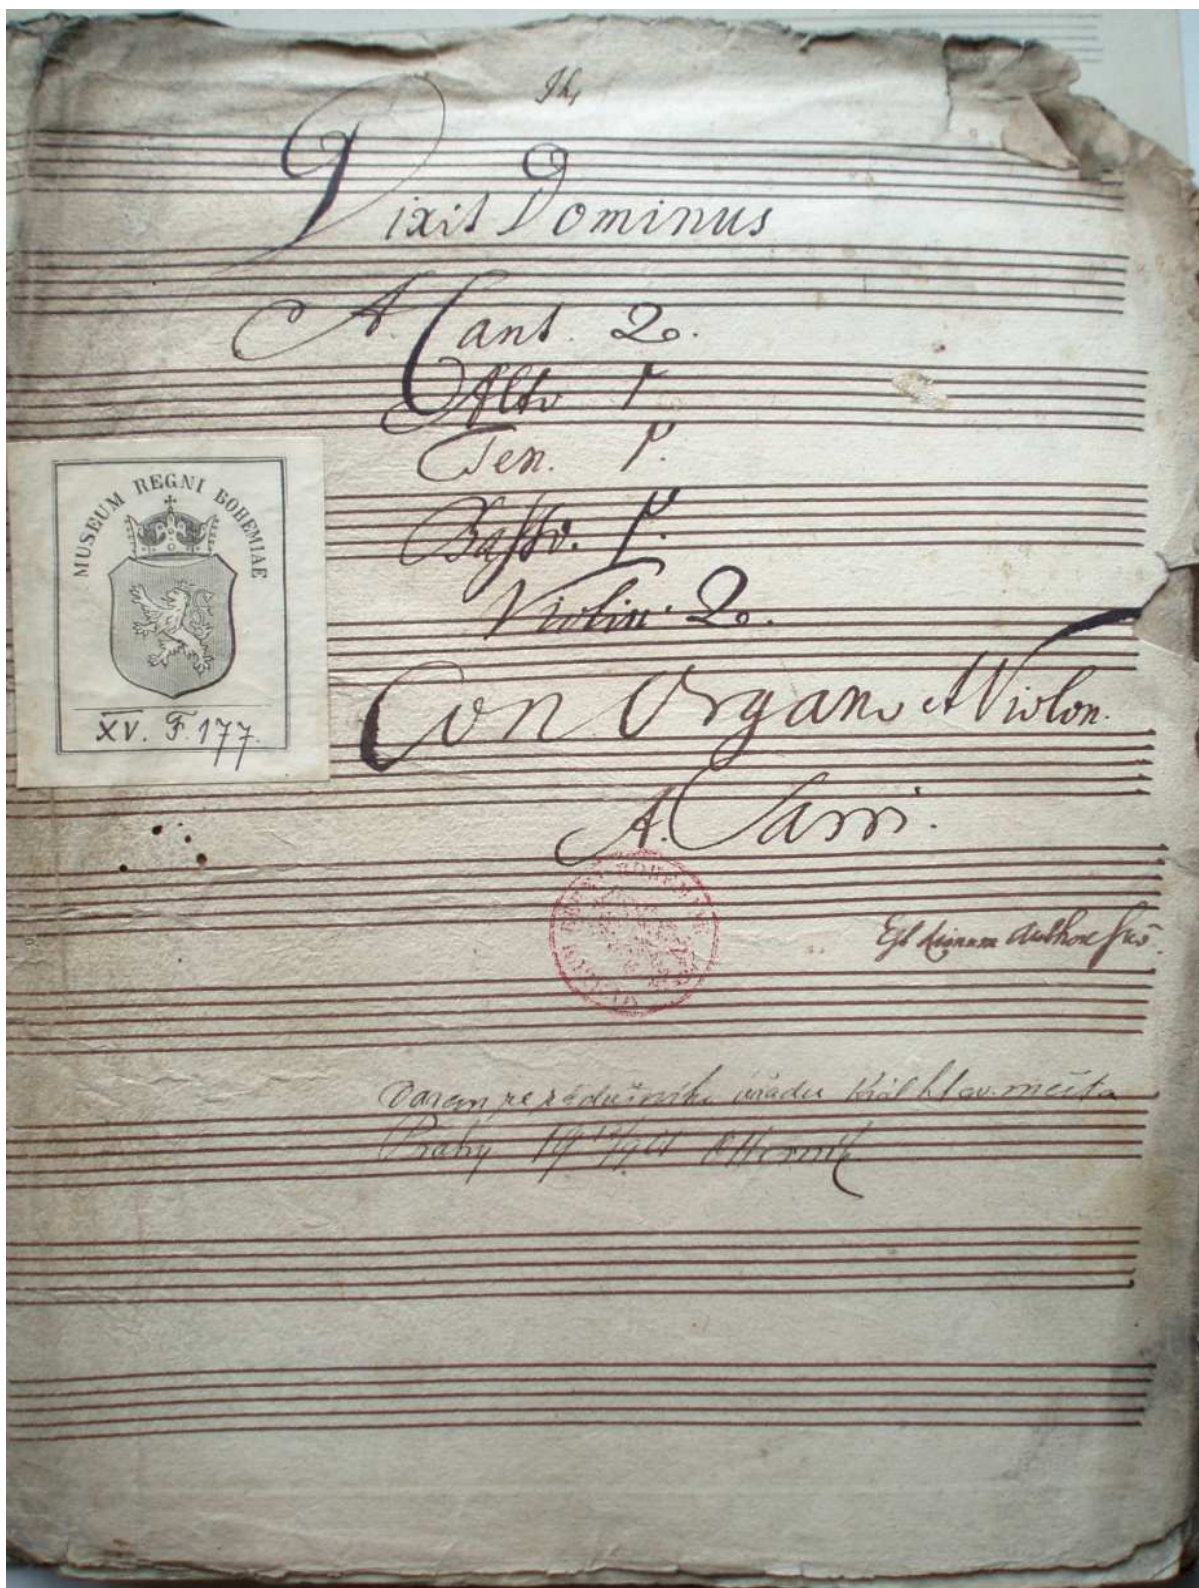 Dixit Dominus
A. Cant. 2.
Alto 1
Ten. 1.
Basso. 1.
Violin. 2.
Con Organo et Violon.
A. Sarri.
MUSEUM REGNI BOHEMIAE
XV. F 177.
Authore
Darem úřadu Král hlav. města
Prahy